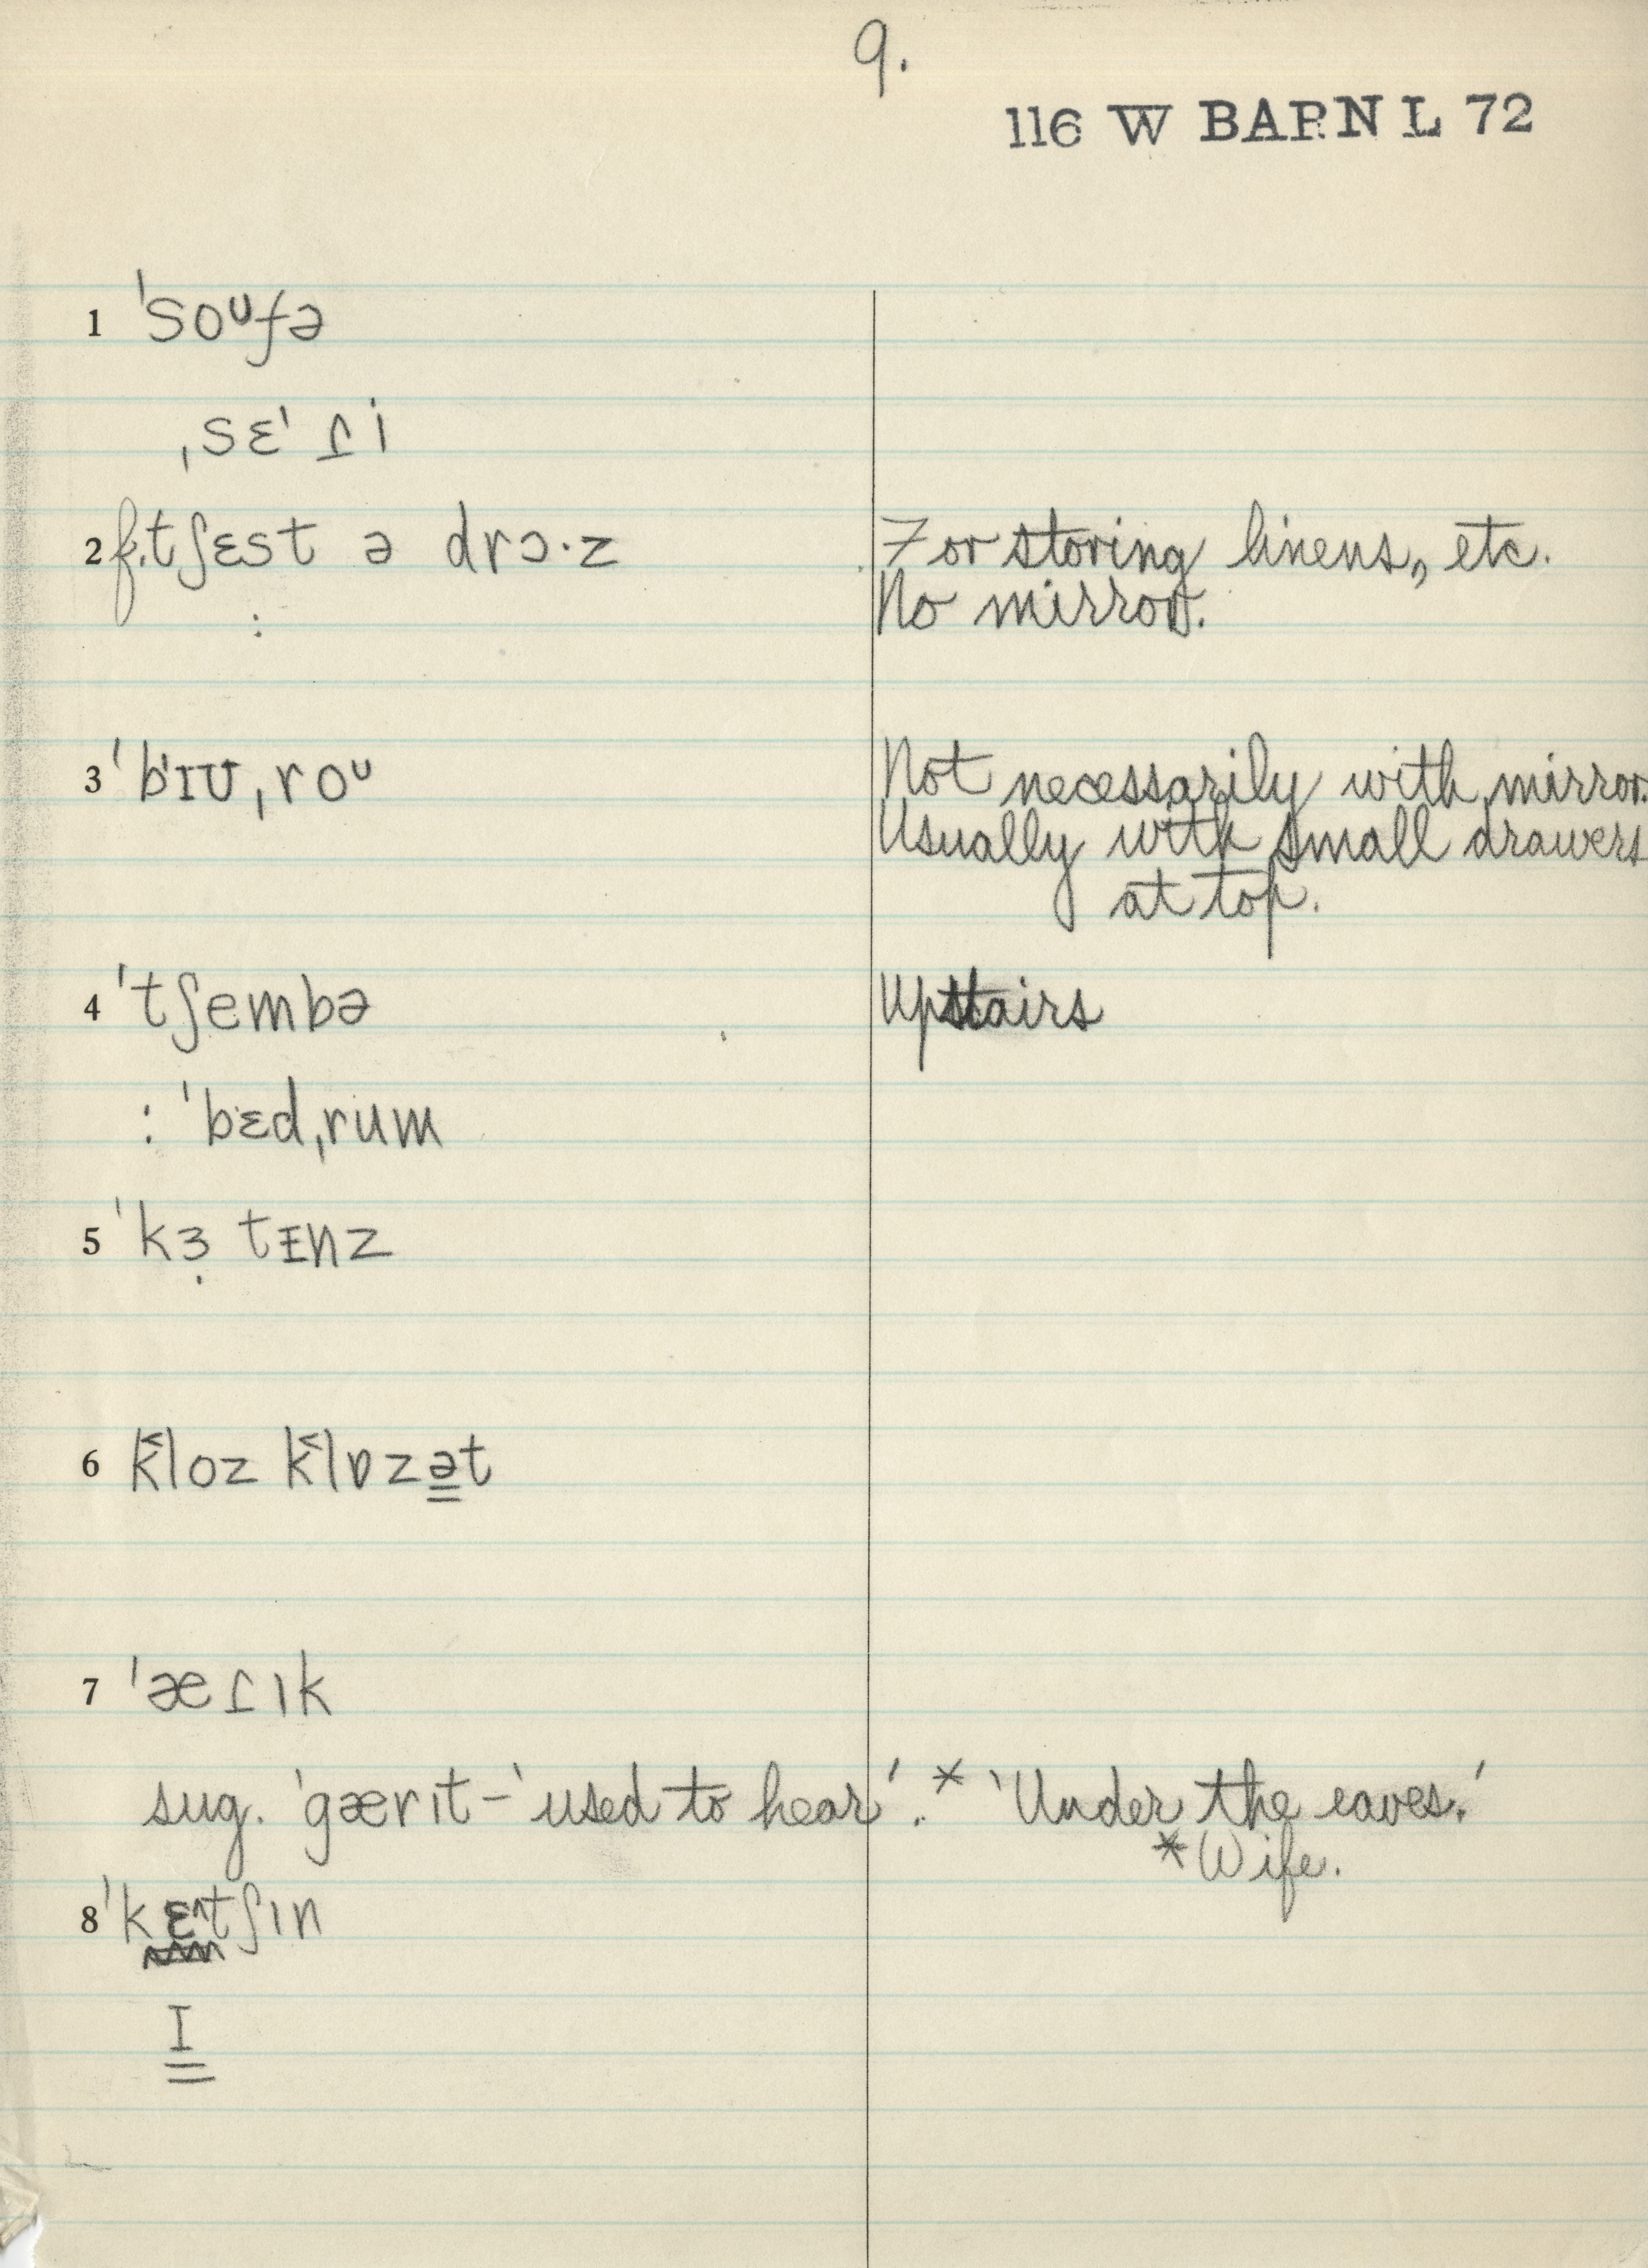 9.
116 W BARN L 72
1 ˈsoᶷfə
ˌsɛˈɾ̱i
2 f. tʃɛst ə drɔ·z For storing linens, etc.
: No mirror.
3 ˈbɪʊˌroᶸ Not necessarily with mirror.
Usually with small drawers
at top.
4 ˈtʃembə Upstairs
: ˈbɛdˌrum
5 ˈkɜ̣ tɪnz
6 k̆loz k̆lɒzə̳t
7 ˈæɾ̱ık
sug. ˈgærıt – 'used to hear'. * 'Under the eaves.'
*Wife.
8 ˈkɛ^tʃın
I̳